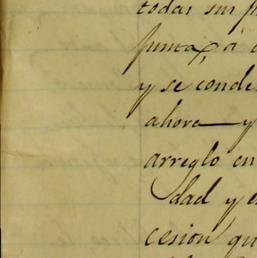 todas sus p
junta, á
y se conde
ahora — y
arreglo en
dad y e
cesion qu